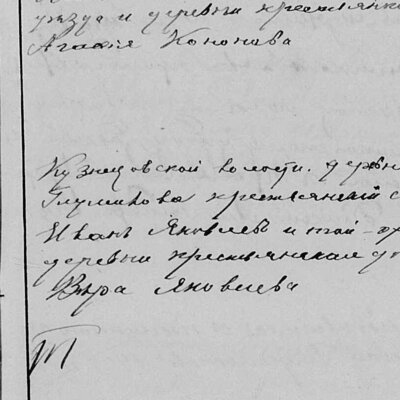 уезда и деревни крестьянка
Агапія Кононова
Кузнецовской волости, дерев
Глушкова крестьянскій с
Иванъ Яковлевъ и той-
деревни крестьянская д
Вѣра Яковлева